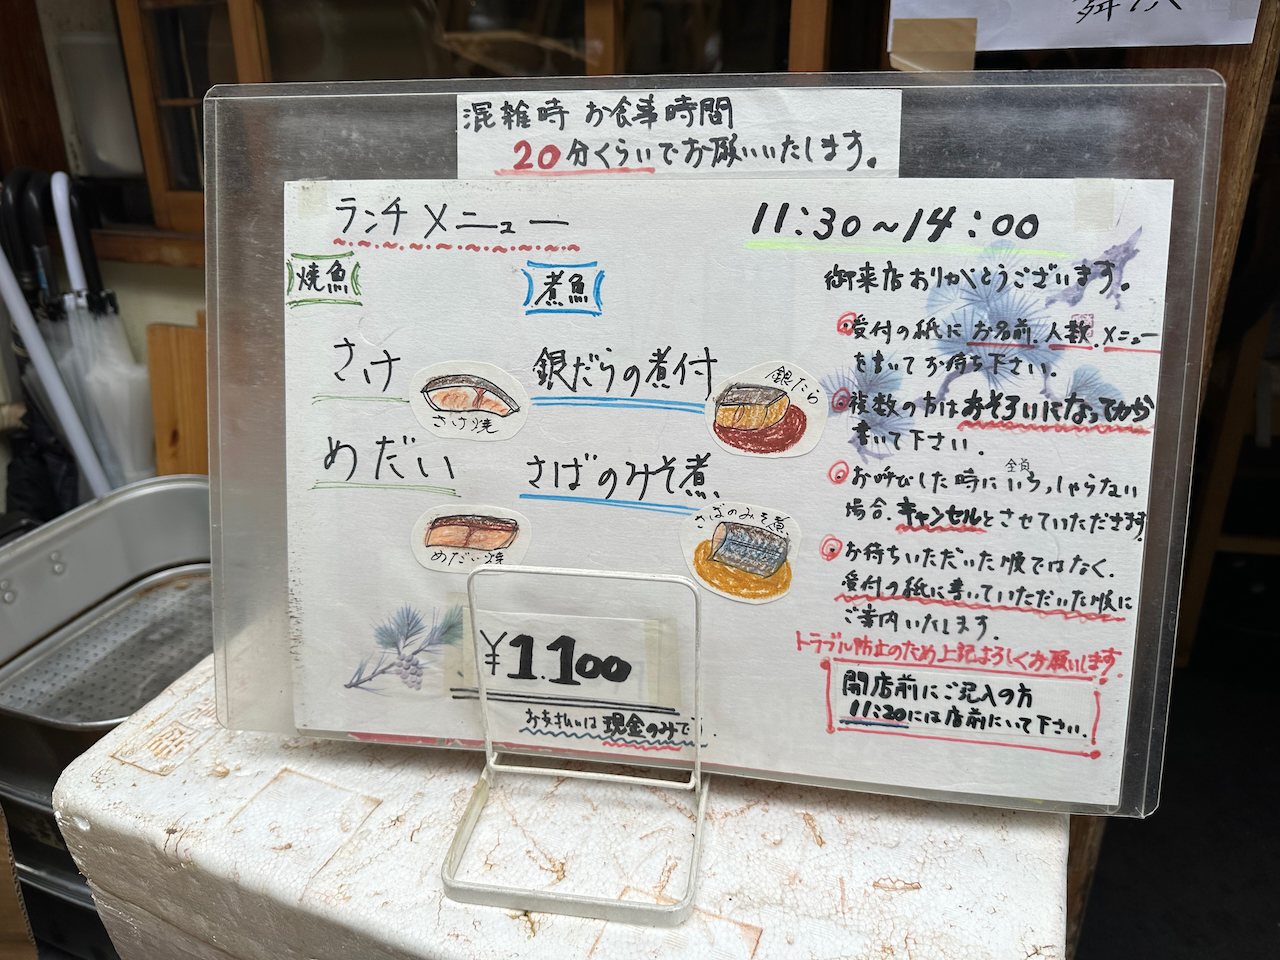 混雑時 お食事時間
20分くらいでお願いいたします。
ランチメニュー
11:30~14:00
焼魚
煮魚
さけ
さけ焼
めだい
めだい焼
銀だらの煮付
銀だら
さばのみそ煮
さばのみそ煮
¥1.100
お支払いは現金のみです.
御来店ありがとうございます。
受付の紙にお名前.人数.メニュー
を書いてお待ち下さい。
複数の方はおそろいになってから
書いて下さい.
お呼びした時に全員いらっしゃらない
場合.キャンセルとさせていただきます
お待ちいただいた順ではなく.
受付の紙に書いていただいた順に
ご案内いたします.
トラブル防止のため上記よろしくお願いします
開店前にご記入の方
11:20には店前にいて下さい.